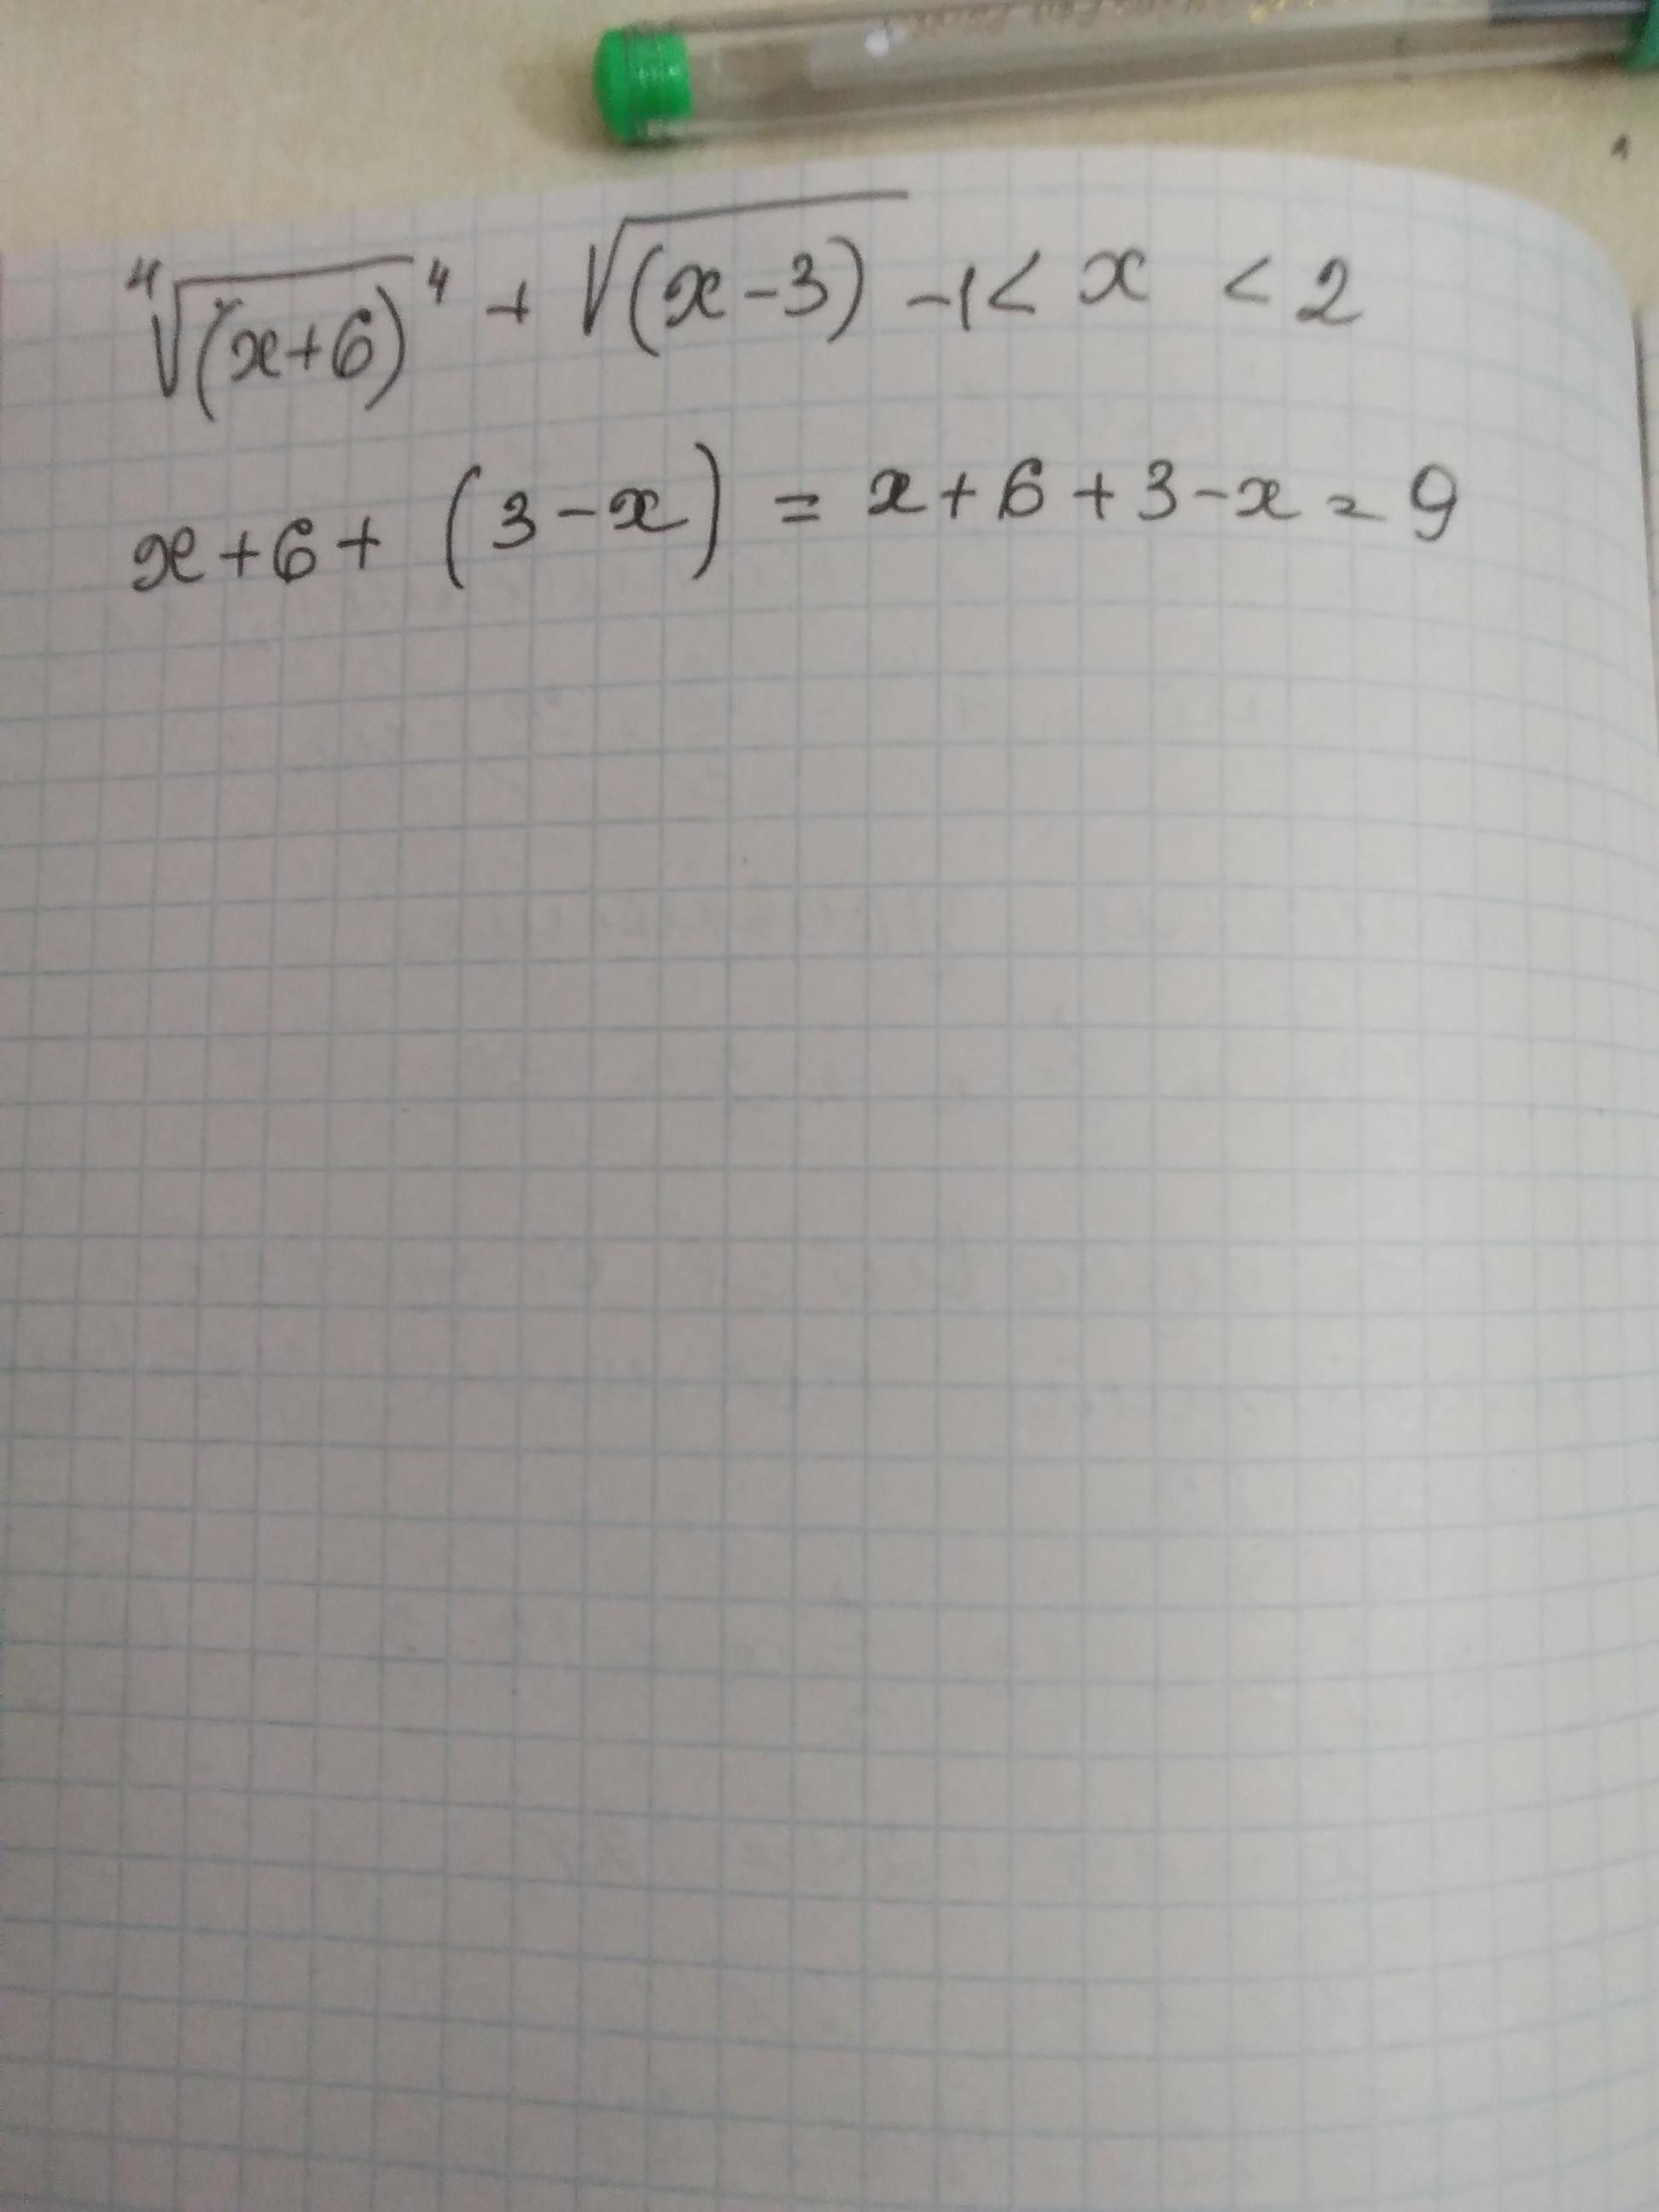 ⁴√(x+6)⁴ + √(x-3) -1< x < 2
x+6+ (3-x) = x+6+3-x=9